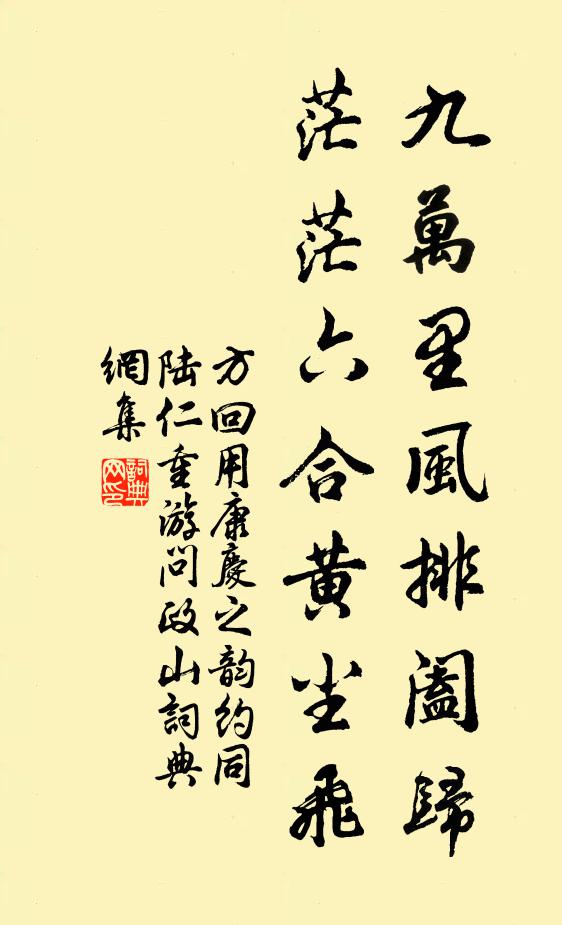 九萬里風排闔歸
茫茫六合黄尘飛
方回用康慶之韵約同
陆仁重游问政山詞典
網集
詞典
网印